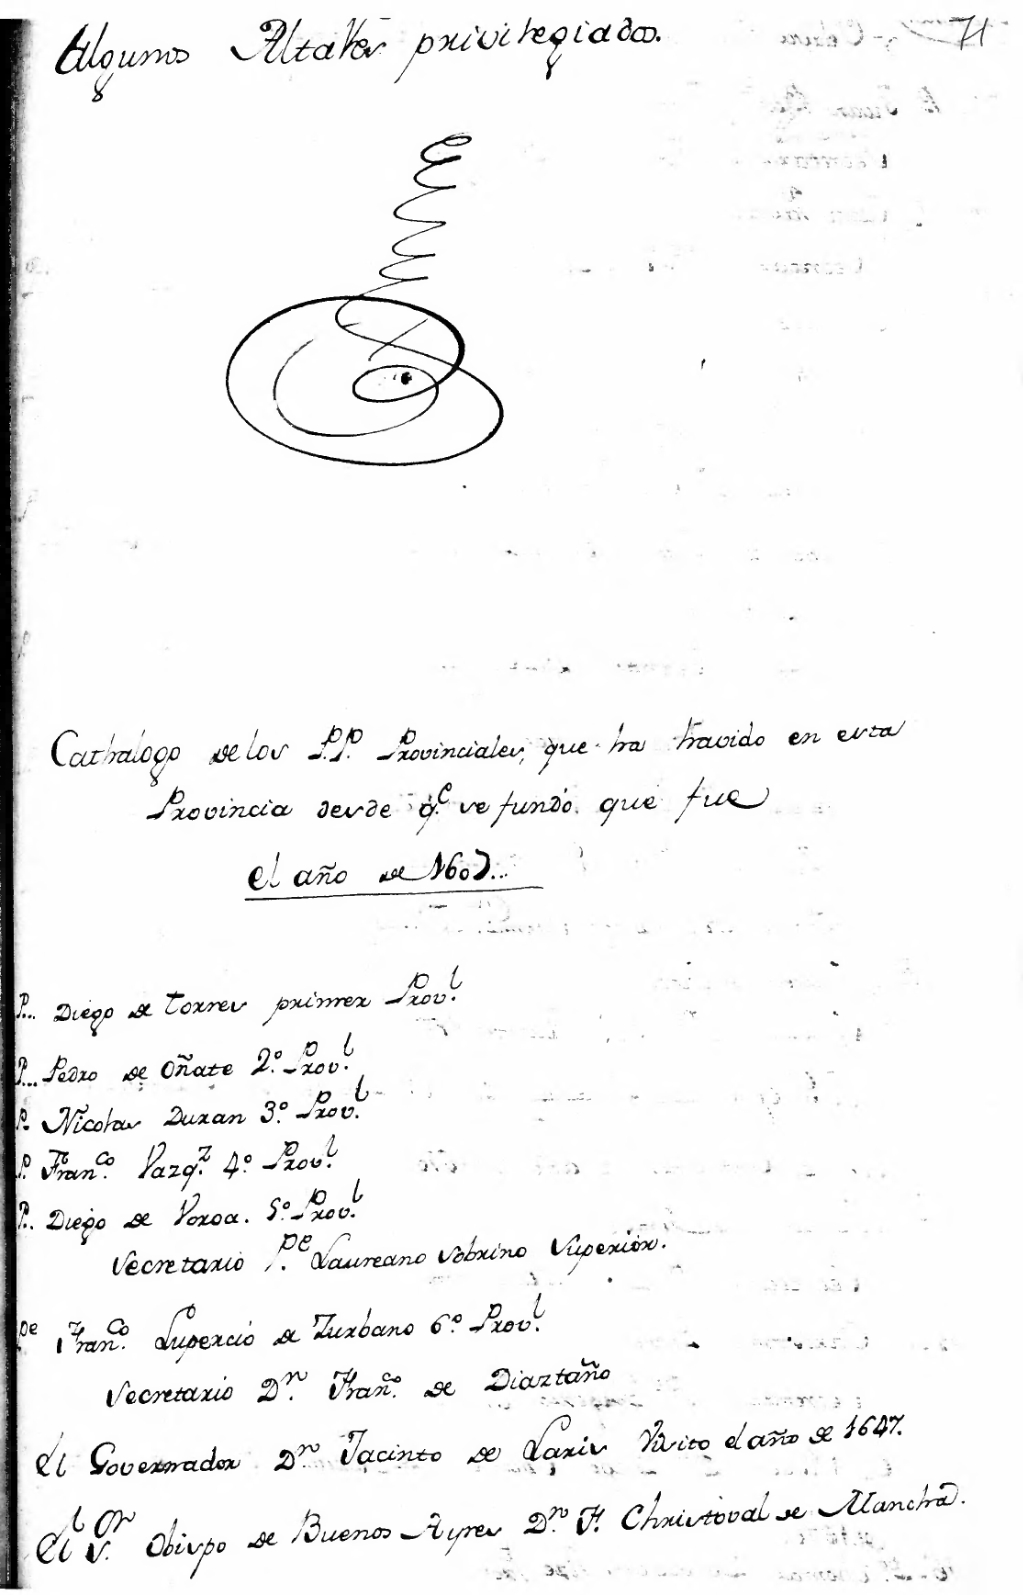 Algunos Altares privilegiados. 71
Cathalogo de los P.P. Provinciales, que ha havido en esta
Provincia desde q.e se fundó. que fue
el año de 1607...
P... Diego de Torres primer Prov.l
P... Pedro de Oñate 2.o Prov.l
P. Nicolas Duran 3.o Prov.l
P. Fran.co Vazq.z 4.o Prov.l
P.. Diego de Boroa. 5.o Prov.l
Secretario P.e Laureano Sobrino Superior.
Pe Fran.co Lupercio de Zurbano 6.o Prov.l
Secretario D.n Fran.co de Diaztaño
El Governador D.n Jacinto de Laris Visito el año de 1647.
El S.or Obispo de Buenos Ayres D.n F. Christoval de Mancha.